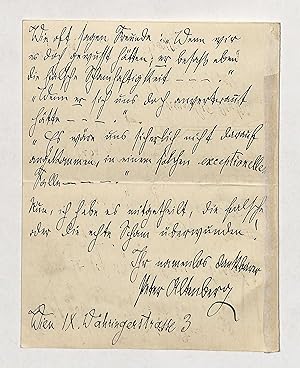 Wie oft sagen Freunde: „Wenn wir
es doch gewusst hätten; er besass eben
die falsche Schamhaftigkeit — — — .“
„Wenn er sich uns doch anvertraut
hätte — — — .“
„Es wäre uns sicherlich nicht darauf
angekommen, in einem solchen exceptionellen
Falle — — — .“
Nun, ich habe es mitgetheilt, die falsche
oder die echte Scham überwunden!
Ihr namenlos dankbarer
Peter Altenberg
Wien IX. Währingerstrasse 3